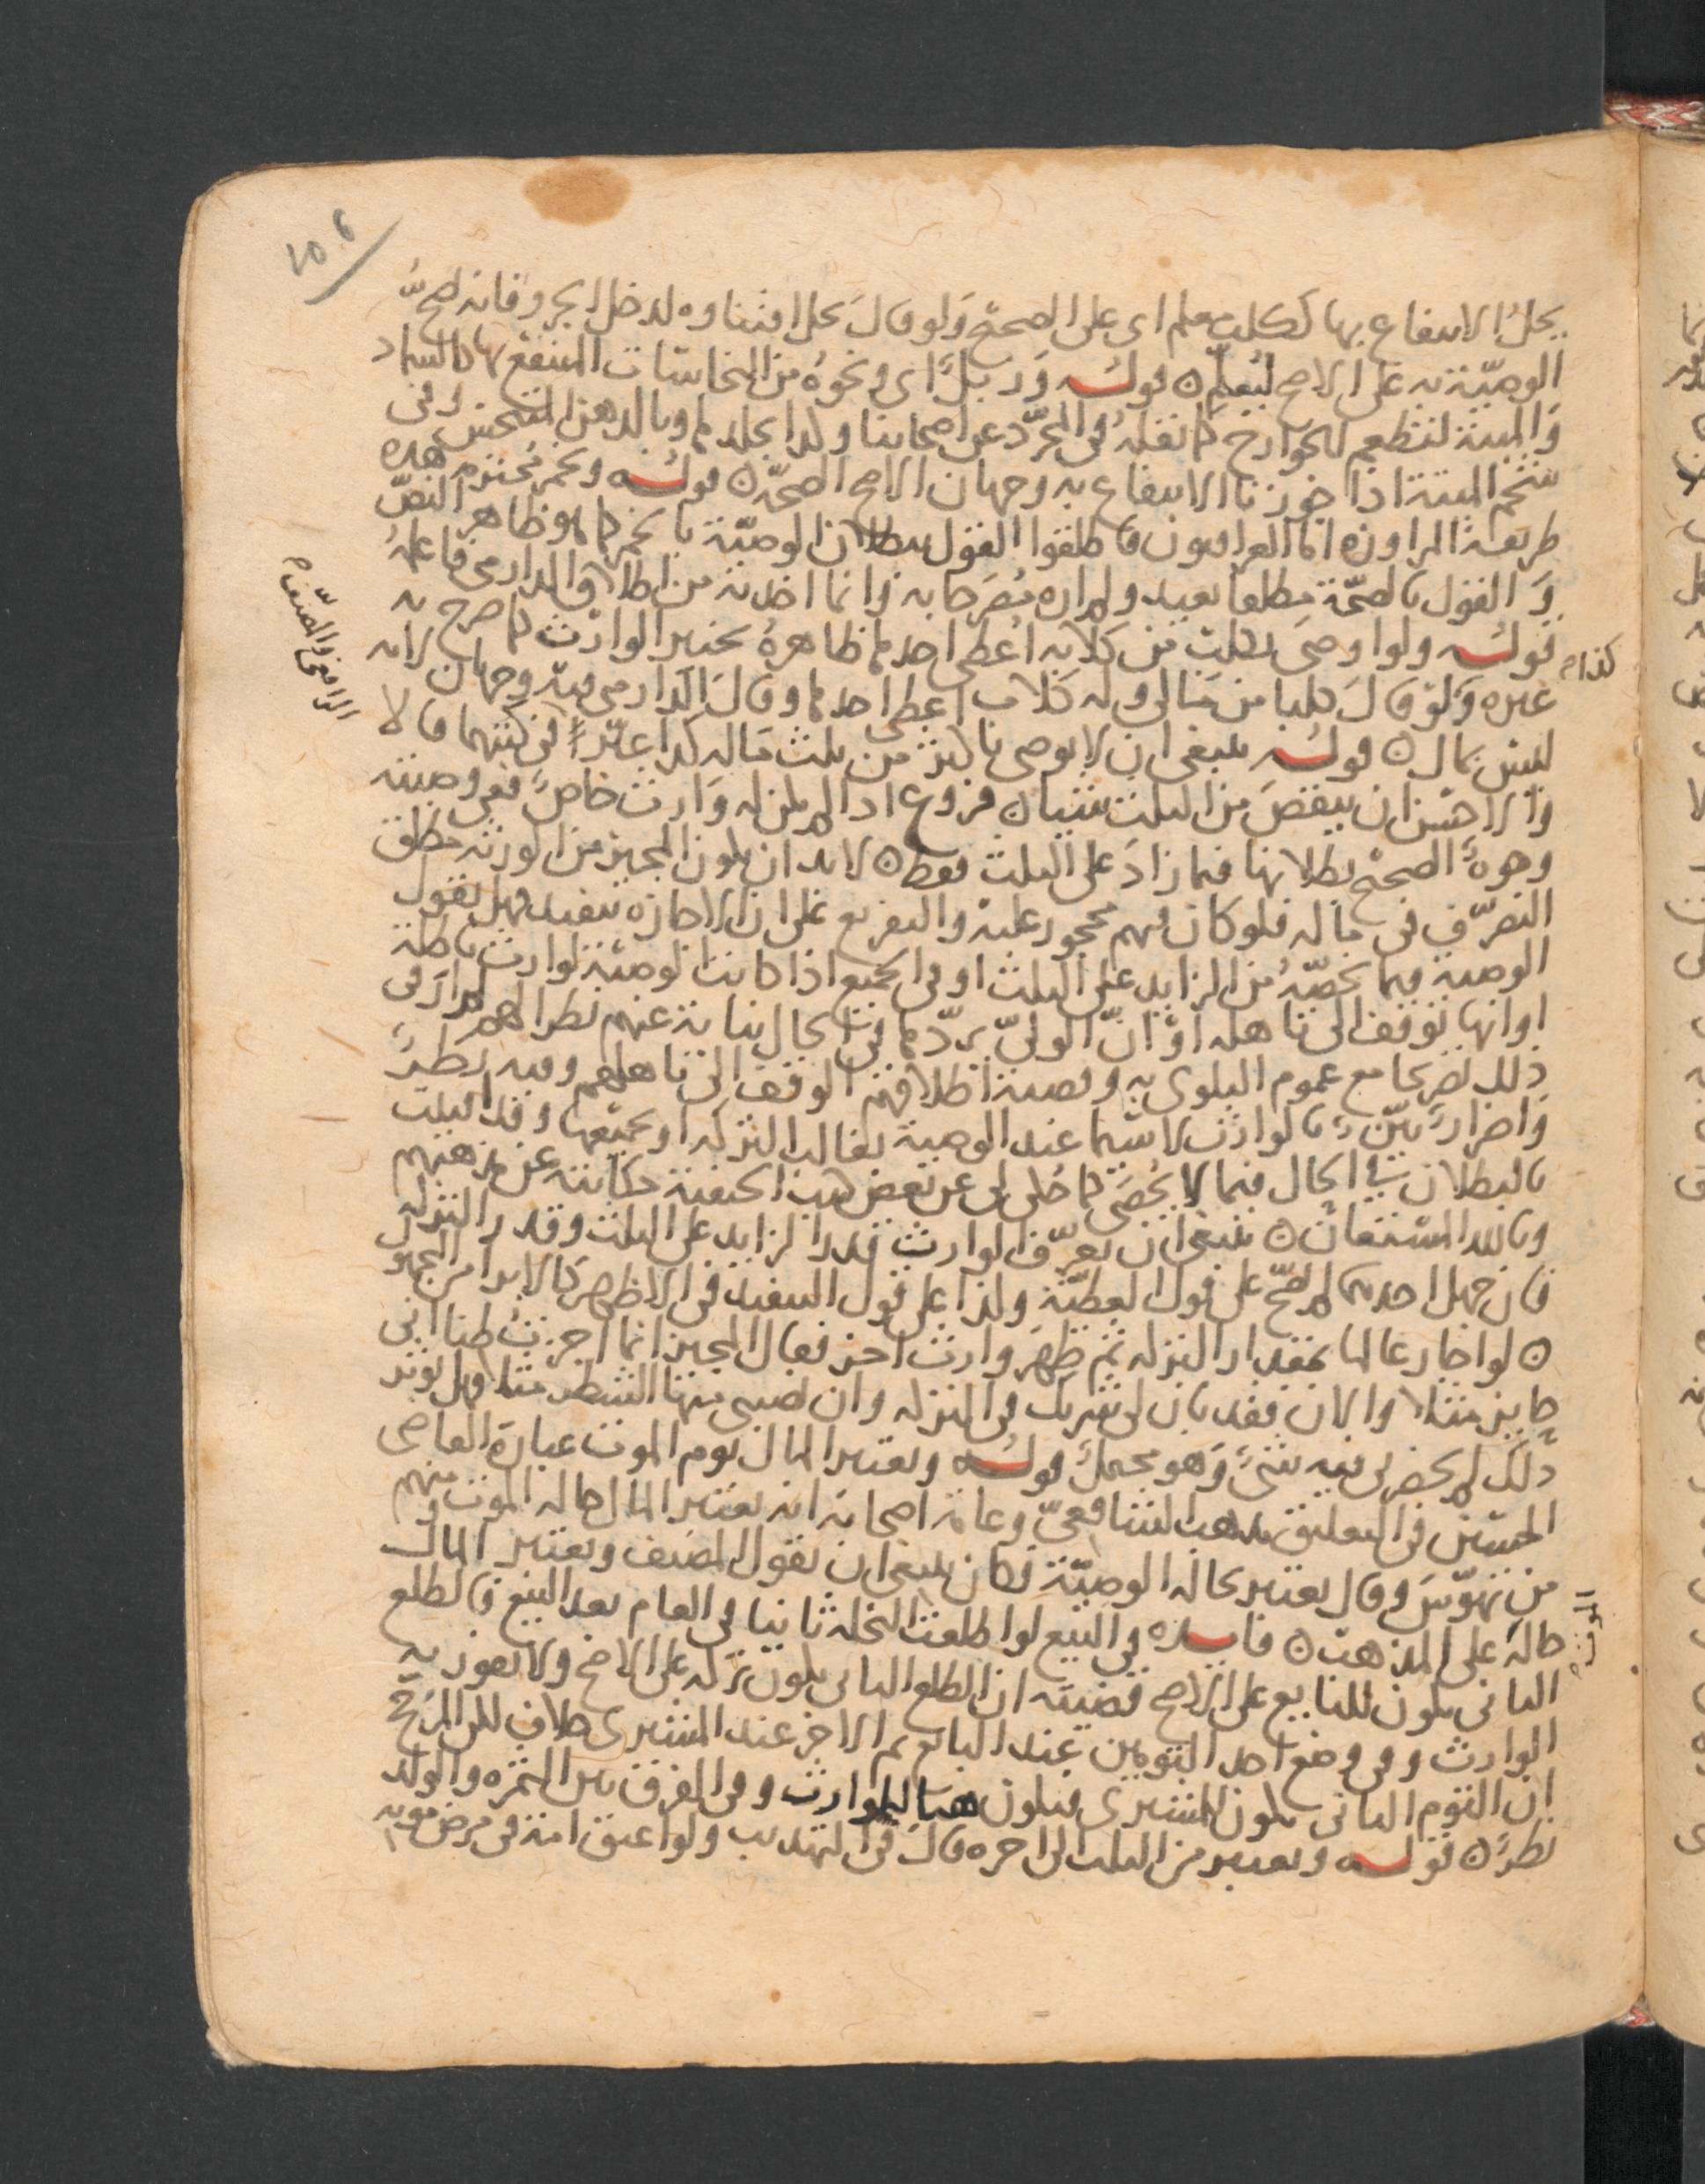 ١٥٦
يحل الانتفاع بها ككلب معلم اى على الصحيح ولو قال يحل اقتناوه لدخل الجرو فانه تصح
الوصية به على الاصح ليعلم ٥ قوله وزبل اى ونحوه من النجاسات المنتفع بها كالسماد
والميتة لتطعم للجوارح كما نقله فى المجرد عن اصحابنا وكذا بجلدها وبالدهن المتنجس وفى
شحم الميتة اذا جوزنا الانتفاع به وجهان الاصح الصحة ٥ قوله وخمر محترمة هذه
طريقة المراوزة اما العراقيون فاطلقوا القول ببطلان الوصية بالخمر كما هو ظاهر النص
والقول بالصحة مطلقا بعيد ولم اره مصرحا به وانما اخذته من اطلاق الدارمى فاعلمه
قوله ولو اوصى بكلب من كلابه اعطى احدها ظاهره بخيرة الوارث كما صرح به
غيره ولو قال كلبا من مالى وله كلاب اعطى احدها وقال الدارمى فيه وجهان لانه
ليس بمال ٥ قوله ينبغى ان لا يوصى باكثر من ثلث ماله كذا عبرا فى كتبهما قالا
والاحسن ان ينقص من الثلث شيا ٥ فروع اذا لم يكن له وارث خاص ففى وصيته
وجوه الصحيح بطلانها فيما زاد على الثلث فقط ٥ لا بد ان يكون المجيز من الورثة مطلق
التصرف فى ماله فلو كان فيهم محجور عليه والتفريع على ان الاجازة تنفيذ فهل نقول
الوصية فيما يخصه من الزايد على الثلث او فى الجميع اذا كانت الوصية لوارث باطلة
او انها توقف الى تاهله او ان الولى يردها فى الحال نيابة عنهم نظرا لهم لم ار فى
ذلك تصريحا مع عموم البلوى به وقضية اطلاقهم الوقف الى تاهلهم وفيه نظر
واضرار بين بالوارث لا سيما عند الوصية بغالب التركة او بجميعها وقد افتيت
بالبطلان فى الحال فيما لا يحصى كما حكى لى عن بعض كتب الحنفية حكايته عن مذهبهم
وبالله المستعان ٥ ينبغى ان يعرف الوارث قدر الزايد على الثلث وقدر التركة
فان جهل احدهما لم تصح على قول العطية وكذا على قول التنفيذ فى الاظهر كالابرا من المجهول
٥ لو اجاز عالما بمقدار التركة ثم ظهر وارث اخر فقال المجيز انما اجزت ظنا انى
حايز مثلا والان فقد بان لى شريك فى التركة وان نصيبى منها الشطر مثلا فهل يوثر
ذلك لم يحضرنى فيه شئ وهو محتمل قوله ويعتبر المال يوم الموت عبارة القاضى
الحسين فى التعليق مذهب الشافعى وعامة اصحابه انه يعتبر المال حالة الموت ومنهم
من تهوس وقال يعتبر حالة الوصية فكان ينبغى ان يقول المصنف ويعتبر المال
حالة على المذهب ٥ فايدة فى البيع لو اطلعت النخلة ثانيا فى العام بعد البيع فالطلع
الثانى يكون للبايع على الاصح قضيته ان الطلع الثانى يكون تركة على الاصح ولا يفوز به
الوارث وفى وضع احد التومين عند البايع ثم الاخر عند المشترى خلاف لكن المرجح
ان التوم الثانى يكون للمشترى فيكون هنا للوارث وفى الفرق بين الثمرة والولد
نظر ٥ قوله ويعتبر من الثلث الى اخره قال فى التهذيب ولو اعتق امة فى مرض موته
الرافعى والمصنف م
كذا م
الموت م